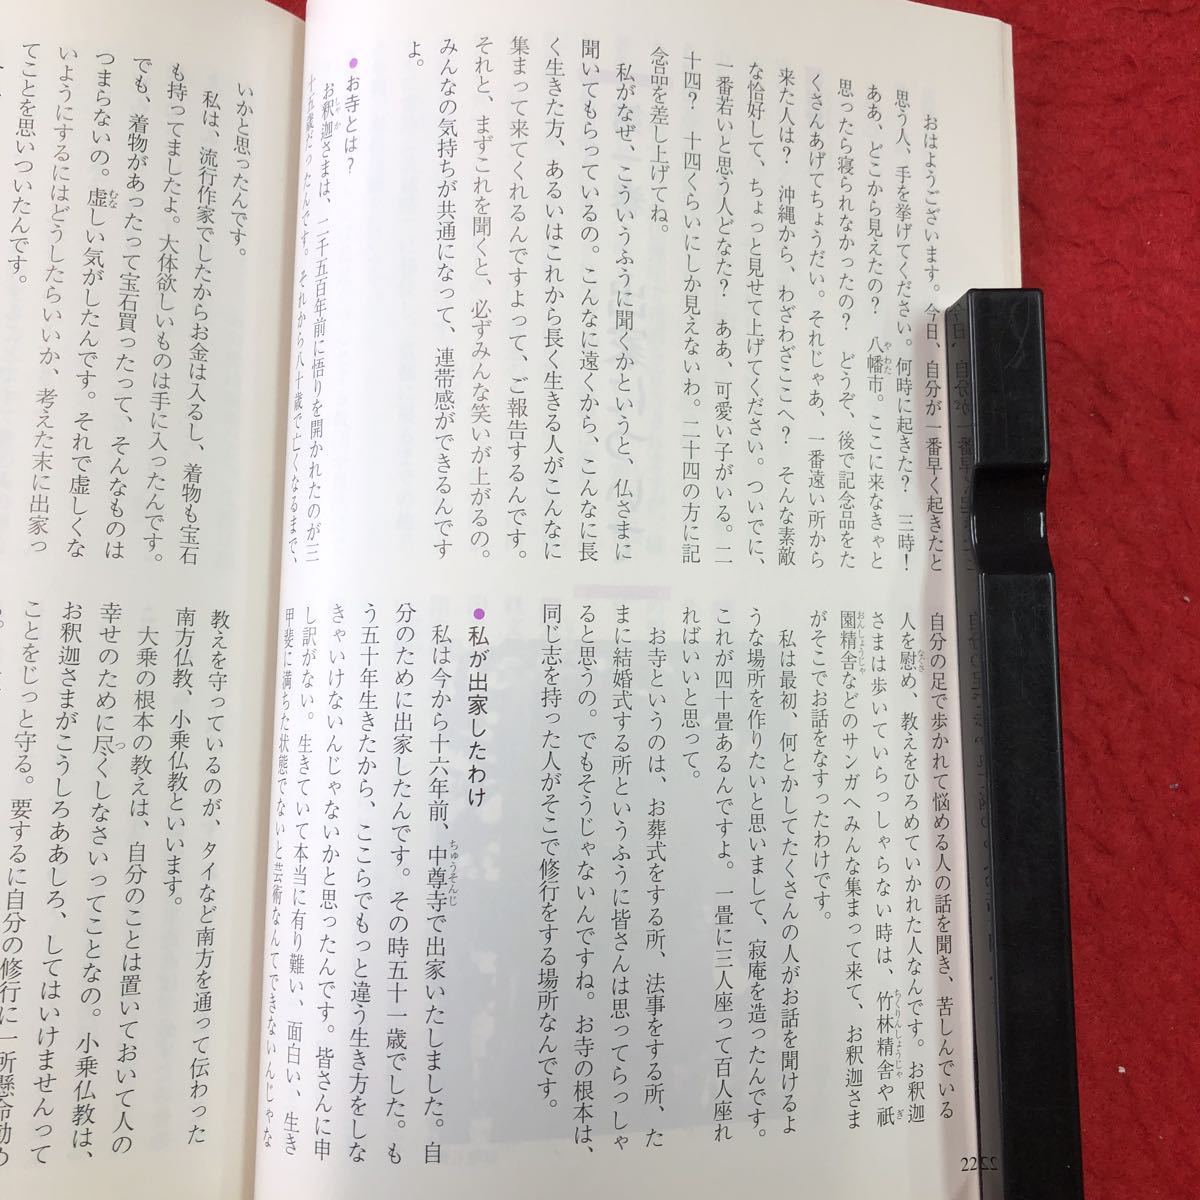 おはようございます。今日、自分が一番早く起きたと
思う人、手を挙げてください。何時に起きた？　三時！
ああ、どこから見えたの？　八幡市。ここに来なきゃと
思ったら寝られなかったの？　どうぞ、後で記念品をた
くさんあげてちょうだい。それじゃあ、一番遠い所から
来た人は？　沖縄から、わざわざここへ？　そんな素敵
な恰好して、ちょっと見せて上げてください。ついでに、
一番若いと思う人どなた？　ああ、可愛い子がいる。二
十四？　十四くらいにしか見えないわ。二十四の方に記
念品を差し上げてね。
私がなぜ、こういうふうに聞くかというと、仏さまに
聞いてもらっているの。こんなに遠くから、こんなに長
く生きた方、あるいはこれから長く生きる人がこんなに
集まって来てくれるんですよって、ご報告するんです。
それと、まずこれを聞くと、必ずみんな笑いが上がるの。
みんなの気持ちが共通になって、連帯感ができるんです
よ。
●お寺とは？
お釈迦さまは、二千五百年前に悟りを開かれたのが三
十五歳だったんです。それから八十歳で亡くなるまで、
自分の足で歩かれて悩める人の話を聞き、苦しんでいる
人を慰め、教えをひろめていかれた人なんです。お釈迦
さまは歩いていらっしゃらない時は、竹林精舎や祇
園精舎などのサンガへみんな集まって来て、お釈迦さま
がそこでお話をなすったわけです。
私は最初、何とかしてたくさんの人がお話を聞けるよ
うな場所を作りたいと思いまして、寂庵を造ったんです。
これが四十畳あるんですよ。一畳に三人座って百人座れ
ればいいと思って。
お寺というのは、お葬式をする所、法事をする所、た
まに結婚式する所というふうに皆さんは思ってらっしゃ
ると思うの。でもそうじゃないんですね。お寺の根本は、
同じ志を持った人がそこで修行をする場所なんです。
●私が出家したわけ
私は今から十六年前、中尊寺で出家いたしました。自
分のために出家したんです。その時五十一歳でした。も
う五十年生きたから、ここらでもっと違う生き方をしな
きゃいけないんじゃないかと思ったんです。皆さんに申
し訳がない。生きていて本当に有り難い、面白い、生き
甲斐に満ちた状態でないと芸術なんてできないんじゃな
22
いかと思ったんです。
私は、流行作家でしたからお金は入るし、着物も宝石
も持ってましたよ。大体欲しいものは手に入ったんです。
でも、着物があったって宝石買ったって、そんなものは
つまらないの。虚しい気がしたんです。それで虚しくな
いようにするにはどうしたらいいか、考えた末に出家っ
てことを思いついたんです。
教えを守っているのが、タイなど南方を通って伝わった
南方仏教、小乗仏教といいます。
大乗の根本の教えは、自分のことは置いておいて人の
幸せのために尽くしなさいってことなの。小乗仏教は、
お釈迦さまがこうしろああしろ、してはいけませんって
ことをじっと守る。要するに自分の修行に一所懸命励め